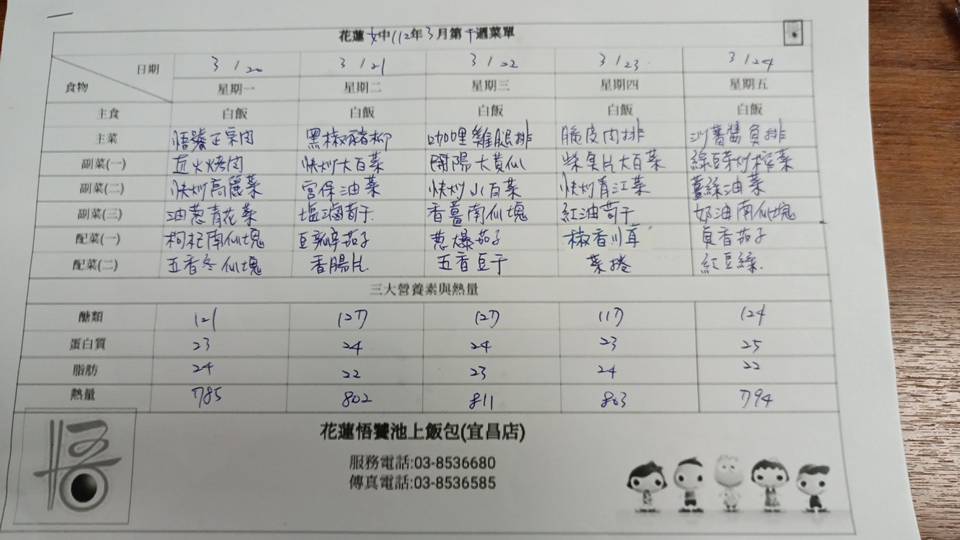 花蓮女中112年3月第 週菜單
日期 3/20 3/21 3/22 3/23 3/24
食物 星期一 星期二 星期三 星期四 星期五
主食 白飯 白飯 白飯 白飯 白飯
主菜 悟饕正宗肉 黑椒豬柳 咖哩雞腿排 脆皮肉排 沙薑醬魚排
副菜(一) 直火烤肉 快炒大白菜 開陽大黃瓜 柴魚片大白菜 綠豆芽炒榨菜
副菜(二) 快炒高麗菜 宮保油菜 快炒小白菜 快炒青江菜 薑絲油菜
副菜(三) 油蔥青花菜 塩滷筍干 香薑南瓜塊 紅油筍干 奶油南瓜塊
配菜(一) 枸杞南瓜塊 豆瓣茄子 蔥爆茄子 椒香川耳 魚香茄子
配菜(二) 五香冬瓜塊 香腸片 五香豆干 菜捲 紅豆絲
三大營養素與熱量
醣類 121 127 127 117 124
蛋白質 23 24 24 23 25
脂肪 24 22 23 24 22
熱量 785 802 811 803 794
花蓮悟饕池上飯包(宜昌店)
服務電話:03-8536680
傳真電話:03-8536585